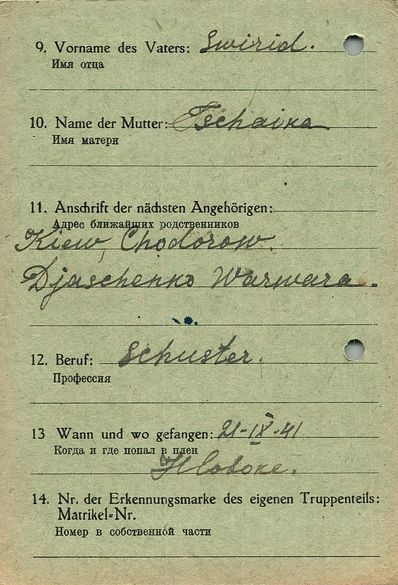 9. Vorname des Vaters: Swirid.
Имя отца
10. Name der Mutter: Tschaika
Имя матери
11. Anschrift der nächsten Angehörigen:
Адрес ближайших родственников
Kiew, Chodorow.
Djaschenko Warwara.
12. Beruf: Schuster.
Профессия
13 Wann und wo gefangen: 21-IX-41
Когда и где попал в плен
14. Nr. der Erkennungsmarke des eigenen Truppenteils:
Matrikel=Nr.
Номер в собственной части